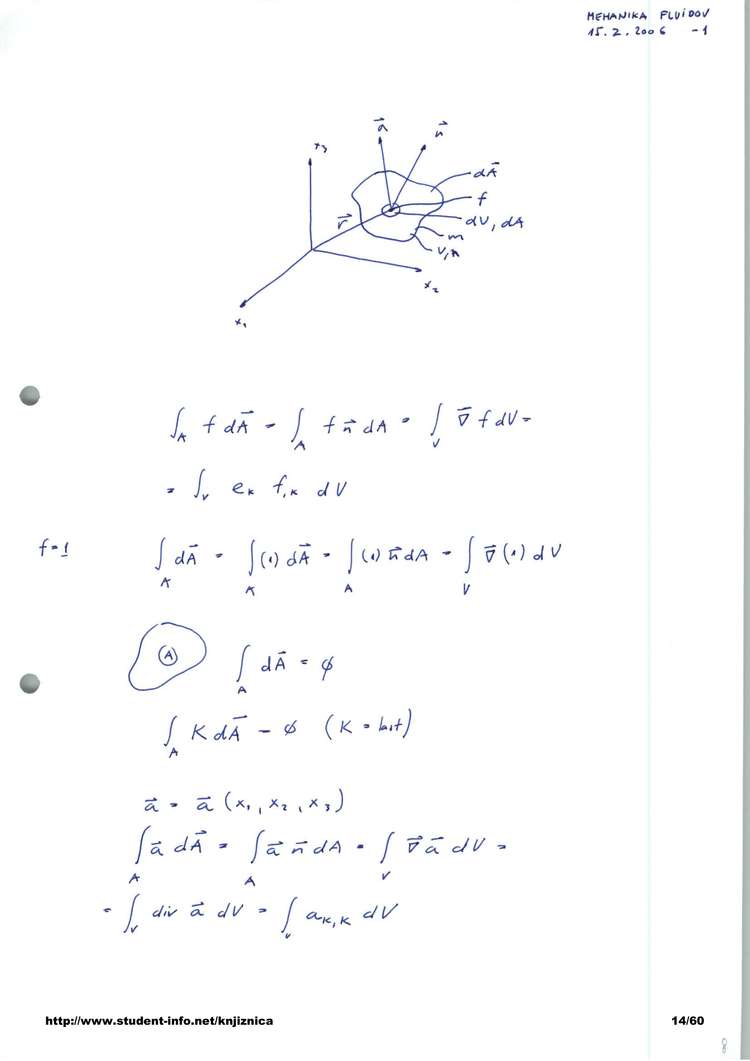 MEHANIKA FLUIDOV
15.2.2006 -1
x₃
a⃗
n⃗
dA⃗
f
dV, dA
m
r⃗
x₂
x₁
∫_A f dA⃗ = ∫_A f n⃗ dA = ∫_V ∇⃗ f dV =
= ∫_V e_K f,_K dV
f=1 ∫_A dA⃗ = ∫_A (1) dA⃗ = ∫_A (1) n⃗ dA = ∫_V ∇⃗ (1) dV
A ∫_A dA⃗ = ∅
∫_A K dA⃗ = ∅ (K =
a⃗ = a⃗ (x₁, x₂, x₃)
∫_A a⃗ dA⃗ = ∫_A a⃗ n⃗ dA = ∫_V ∇⃗ a⃗ dV =
= ∫_V div a⃗ dV = ∫_V a_K,_K dV
http://www.student-info.net/knjiznica 14/60
8